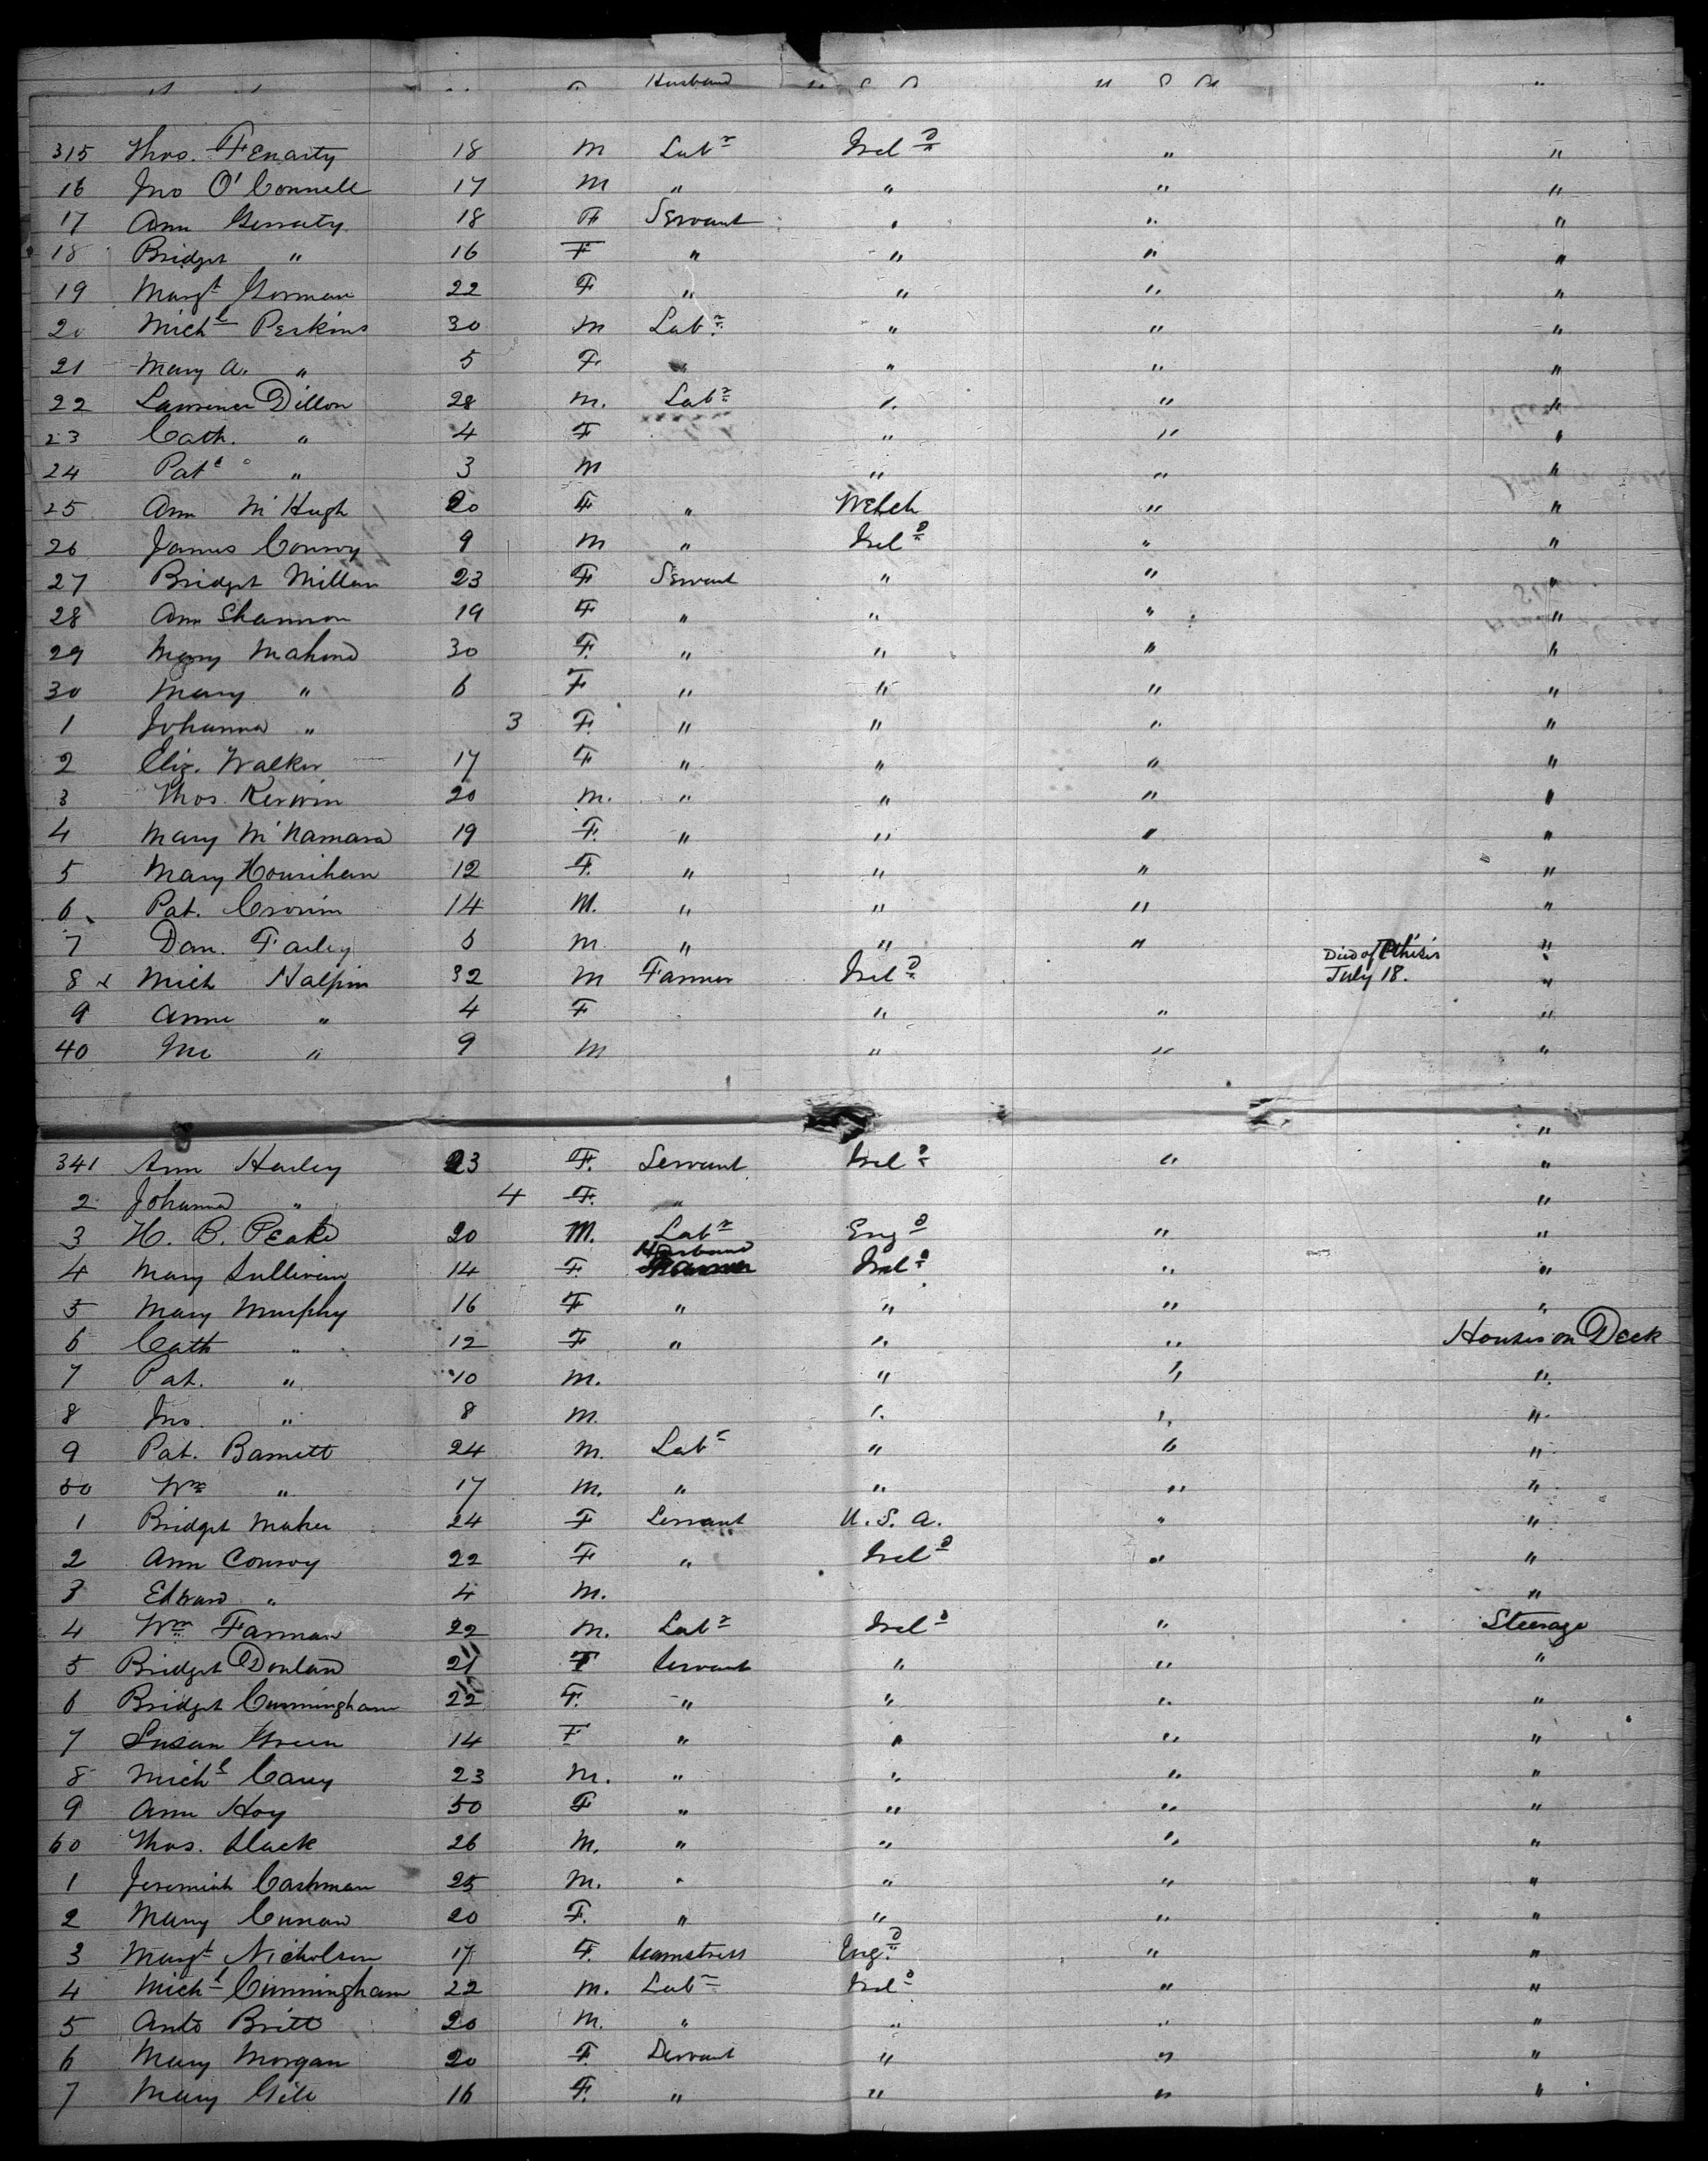 Husband U S A U S A "
315 Thos. Fenarty 18 M Labr Ireld " "
16 Jno O'Connell 17 M " " " "
17 Ann Gerraty 18 F Servant " " "
18 Bridget " 16 F " " " "
19 Margt Gorman 22 F " " " "
20 Michl Perkins 30 M Labr " " "
21 Mary A. " 5 F " " " "
22 Lawrence Dillon 28 M. Labr " " "
23 Cath. " 4 F " " "
24 Patk " 3 M " " "
25 Ann McHugh 20 F " Welch " "
26 James Conroy 9 M " Ireld " "
27 Bridget Millan 23 F Servant " " "
28 Ann Shannon 19 F " " " "
29 Mary Mahond 30 F. " " " "
30 Mary " 6 F " " " "
1 Johanna " 3 F. " " " "
2 Eliz. Walker 17 F " " " "
3 Thos. Kerwin 20 M. " " " "
4 Mary McNamara 19 F. " " " "
5 Mary Hourihan 12 F. " " " "
6 Pat. Cronin 14 M. " " " "
7 Dan. Farley M " " " "
8 x Mich Halpin 32 M Farmer Ireld Died of Pthisis July 18. "
9 Anne " 4 F " " "
40 " 9 M " " "
"
341 Ann Harley 23 F. Servant Ireld " "
2 Johanna " 4 F. " "
3 H. B. Peake 20 M. Labr Engd " "
4 Mary Sullivan 14 F. Husband Ireld " "
5 Mary Murphy 16 F " " " "
6 Cath " 12 F " " " Houses on Deck
7 Pat. " 10 M. " " "
8 Jno. " 8 M. " " "
9 Pat. Barnett 24 M. Labr " " "
50 Wm " 17 M. " " " "
1 Bridget Maher 24 F Servant U. S. A. " "
2 Ann Conroy 22 F " Ireld " "
3 Edward " 4 M. "
4 Wm Farman 22 M. Labr Ireld " Steerage
5 Bridget Donlan 21 F Servant " " "
6 Bridget Cunningham 22 F. " " " "
7 Susan Green 14 F " " " "
8 Michl Carey 23 M. " " " "
9 Ann Hoy 50 F " " " "
60 Thos. Slack 26 M. " " " "
1 Jeremiah Cashman 25 M. " " " "
2 Mary Cunan 20 F. " " " "
3 Margt Nicholson 17 F. Seamstress Engd " "
4 Michl Cunningham 22 M. Labr Ireld " "
5 Anto Britt 20 M. " " " "
6 Mary Morgan 20 F Servant " " "
7 Mary Gill 16 F. " " " "